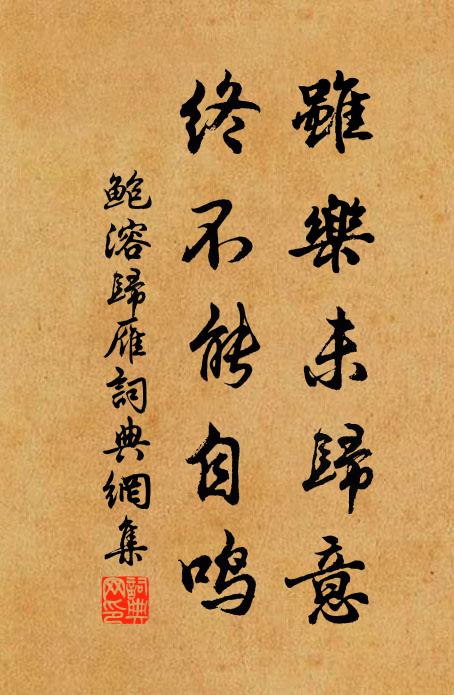 雖樂未歸意
終不能自鳴
鮑溶歸雁詞典網集
詞典
网印